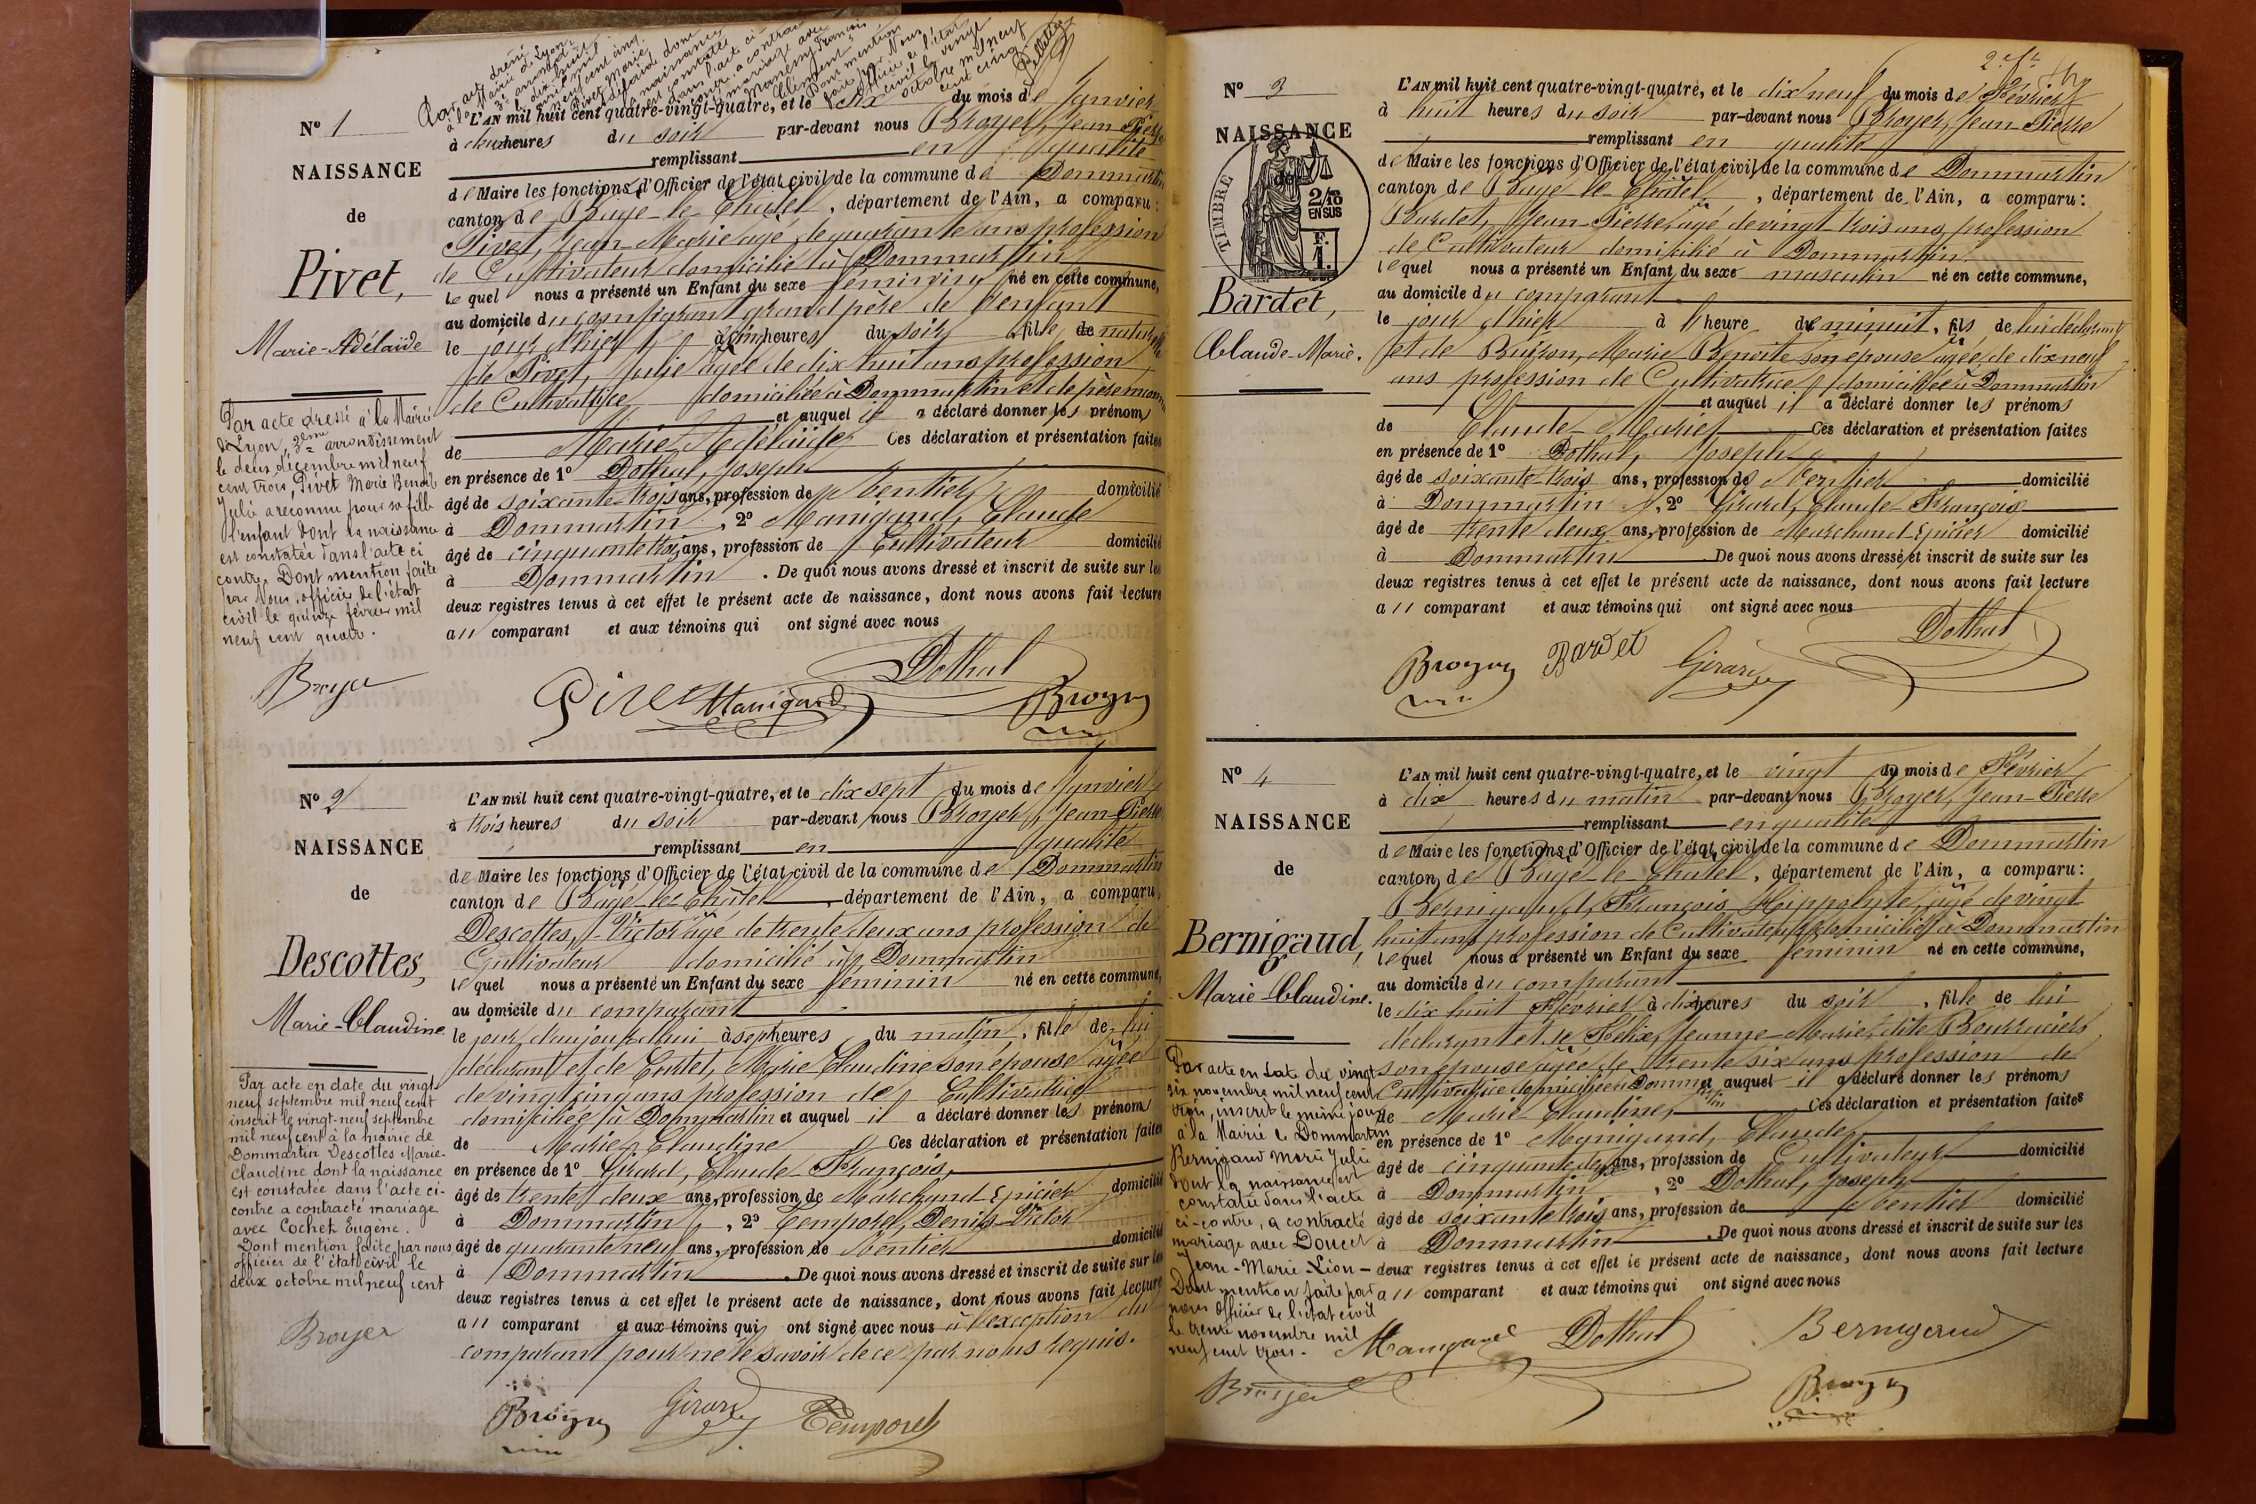 Par acte dressé
à la Mairie de Lyon,
3e arrondt
le dix huit
avril mil
neuf cent cinq
Pivet Marie
Adélaïde dont
la naissance
est constatée
dans l'acte ci-
contre a contracté
mariage avec
Manény François
Clément.
Dont mention
faite par Nous
officier de l'état
civil le vingt
octobre mil neuf
cent cinq
No 1
NAISSANCE
de
Pivet,
Marie-Adélaïde
Par acte dressé à la Mairie
de Lyon, 3ème arrondissement
le deux décembre mil neuf
cent trois, Pivet Marie Benoite
Julie a reconnu pour sa fille
l'enfant dont la naissance
est constatée dans l'acte ci
contre. Dont mention faite
par Nous, officier de l'état
civil le quinze février mil
neuf cent quatre.
Broyer
L'AN mil huit cent quatre-vingt-quatre, et le six du mois de Janvier
à deux heures du soir par-devant nous Broyer, Jean Pierre
remplissant en qualité
de Maire les fonctions d'Officier de l'état civil de la commune de Dommartin
canton de Bagé-le-Châtel, département de l'Ain, a comparu:
Pivet, Jean-Marie âgé de quarante ans profession
de Cultivateur domicilié à Dommartin
lequel nous a présenté un Enfant du sexe féminin né en cette commune,
au domicile du comparant grand père de l'enfant
le jour d'hier à cinq heures du soir, fille de naturelle
de Pivet, Julie âgée de dix huit ans profession
de Cultivatrice domiciliée à Dommartin et de père inconnu
et auquel il a déclaré donner les prénoms
de Marie Adélaïde Ces déclaration et présentation faites
en présence de 1o Dothal, Joseph
âgé de soixante-trois ans, profession de rentier domicilié
à Dommartin, 2o Manigand, Claude
âgé de cinquante trois ans, profession de Cultivateur domicilié
à Dommartin. De quoi nous avons dressé et inscrit de suite sur les
deux registres tenus à cet effet le présent acte de naissance, dont nous avons fait lecture
au comparant et aux témoins qui ont signé avec nous
Dothal
Pivet Manigand Broyer
No 2
NAISSANCE
de
Descottes,
Marie-Claudine
Par acte en date du vingt-
neuf septembre mil neuf cent
inscrit le vingt-neuf septembre
mil neuf cent à la mairie de
Dommartin Descottes Marie-
Claudine dont la naissance
est constatée dans l'acte ci-
contre a contracté mariage
avec Cochet Eugène.
Dont mention faite par nous
officier de l'état civil le
deux octobre mil neuf cent
Broyer
L'AN mil huit cent quatre-vingt-quatre, et le dix sept du mois de Janvier
à trois heures du soir par-devant nous Broyer, Jean Pierre
remplissant en qualité
de Maire les fonctions d'Officier de l'état civil de la commune de Dommartin
canton de Bagé-le-Châtel, département de l'Ain, a comparu,
Descottes, Victor âgé de trente deux ans profession de
Cultivateur domicilié à Dommartin
lequel nous a présenté un Enfant du sexe féminin né en cette commune,
au domicile du comparant
le jour d'aujourd'hui à sept heures du matin, fille de lui
déclarant et de Curtet, Marie Claudine son épouse âgée
de vingt cinq ans profession de Cultivatrice
domiciliée à Dommartin et auquel il a déclaré donner les prénoms
de Marie Claudine Ces déclaration et présentation faites
en présence de 1o Girard, Claude-François
âgé de trente deux ans, profession de Marchand-Epicier domicilié
à Dommartin, 2o Temporel, Denis-Victor
âgé de quarante neuf ans, profession de Rentier domicilié
à Dommartin. De quoi nous avons dressé et inscrit de suite sur les
deux registres tenus à cet effet le présent acte de naissance, dont nous avons fait lecture
au comparant et aux témoins qui ont signé avec nous à l'exception du
comparant pour ne le savoir de ce par nous requis.
Broyer Girard Temporel
No 3
NAISSANCE
de
TIMBRE
2/10
EN SUS
F.
1.
Bardet,
Claude-Marie.
L'AN mil huit cent quatre-vingt-quatre, et le dix neuf du mois de Février
à huit heures du soir par-devant nous Broyer, Jean-Pierre
remplissant en qualité
de Maire les fonctions d'Officier de l'état civil de la commune de Dommartin
canton de Bagé-le-Châtel, département de l'Ain, a comparu:
Bardet, Jean-Pierre, âgé de vingt-trois ans, profession
de Cultivateur domicilié à Dommartin
lequel nous a présenté un Enfant du sexe masculin né en cette commune,
au domicile du comparant
le jour d'hier à heure de minuit, fils de lui déclarant
et de Buiron, Marie Benoite son épouse âgée de dix neuf
ans profession de Cultivatrice domiciliée à Dommartin
et auquel il a déclaré donner les prénoms
de Claude-Marie Ces déclaration et présentation faites
en présence de 1o Dothal, Joseph
âgé de soixante-trois ans, profession de Rentier domicilié
à Dommartin, 2o Girard, Claude-François
âgé de trente deux ans, profession de Marchand-Epicier domicilié
à Dommartin De quoi nous avons dressé et inscrit de suite sur les
deux registres tenus à cet effet le présent acte de naissance, dont nous avons fait lecture
au comparant et aux témoins qui ont signé avec nous
Dothal
Broyer Bardet Girard
No 4
NAISSANCE
de
Bernigaud,
Marie-Claudine.
Par acte en date du vingt
six novembre mil neuf cent
trois, inscrit le même jour
à la Mairie de Dommartin
Bernigaud Marie Julie
dont la naissance est
constatée dans l'acte
ci-contre, a contracté
mariage avec Doucet
Jean-Marie-Lion-
Dont mention faite par
nous Officier de l'état civil
le trente novembre mil
neuf cent trois.
Broyer
L'AN mil huit cent quatre-vingt-quatre, et le vingt du mois de Février
à dix heures du matin par-devant nous Broyer, Jean-Pierre
remplissant en qualité
de Maire les fonctions d'Officier de l'état civil de la commune de Dommartin
canton de Bagé-le-Châtel, département de l'Ain, a comparu:
Bernigaud, François Hippolyte, âgé de vingt
huit ans profession de Cultivateur domicilié à Dommartin
lequel nous a présenté un Enfant du sexe féminin né en cette commune,
au domicile du comparant
le dix huit Février à dix heures du soir, fille de lui
déclarant et de Félix, Jeanne-Marie, dite
son épouse âgée de trente six ans profession de
Cultivatrice domiciliée à Dommartin et auquel il a déclaré donner les prénoms
de Marie Claudine Ces déclaration et présentation faites
en présence de 1o Manigand, Claude
âgé de cinquante ans, profession de Cultivateur domicilié
à Dommartin, 2o Dothal, Joseph
âgé de soixante trois ans, profession de Rentier domicilié
à Dommartin. De quoi nous avons dressé et inscrit de suite sur les
deux registres tenus à cet effet le présent acte de naissance, dont nous avons fait lecture
au comparant et aux témoins qui ont signé avec nous
Manigand Dothal Bernigaud
Broyer